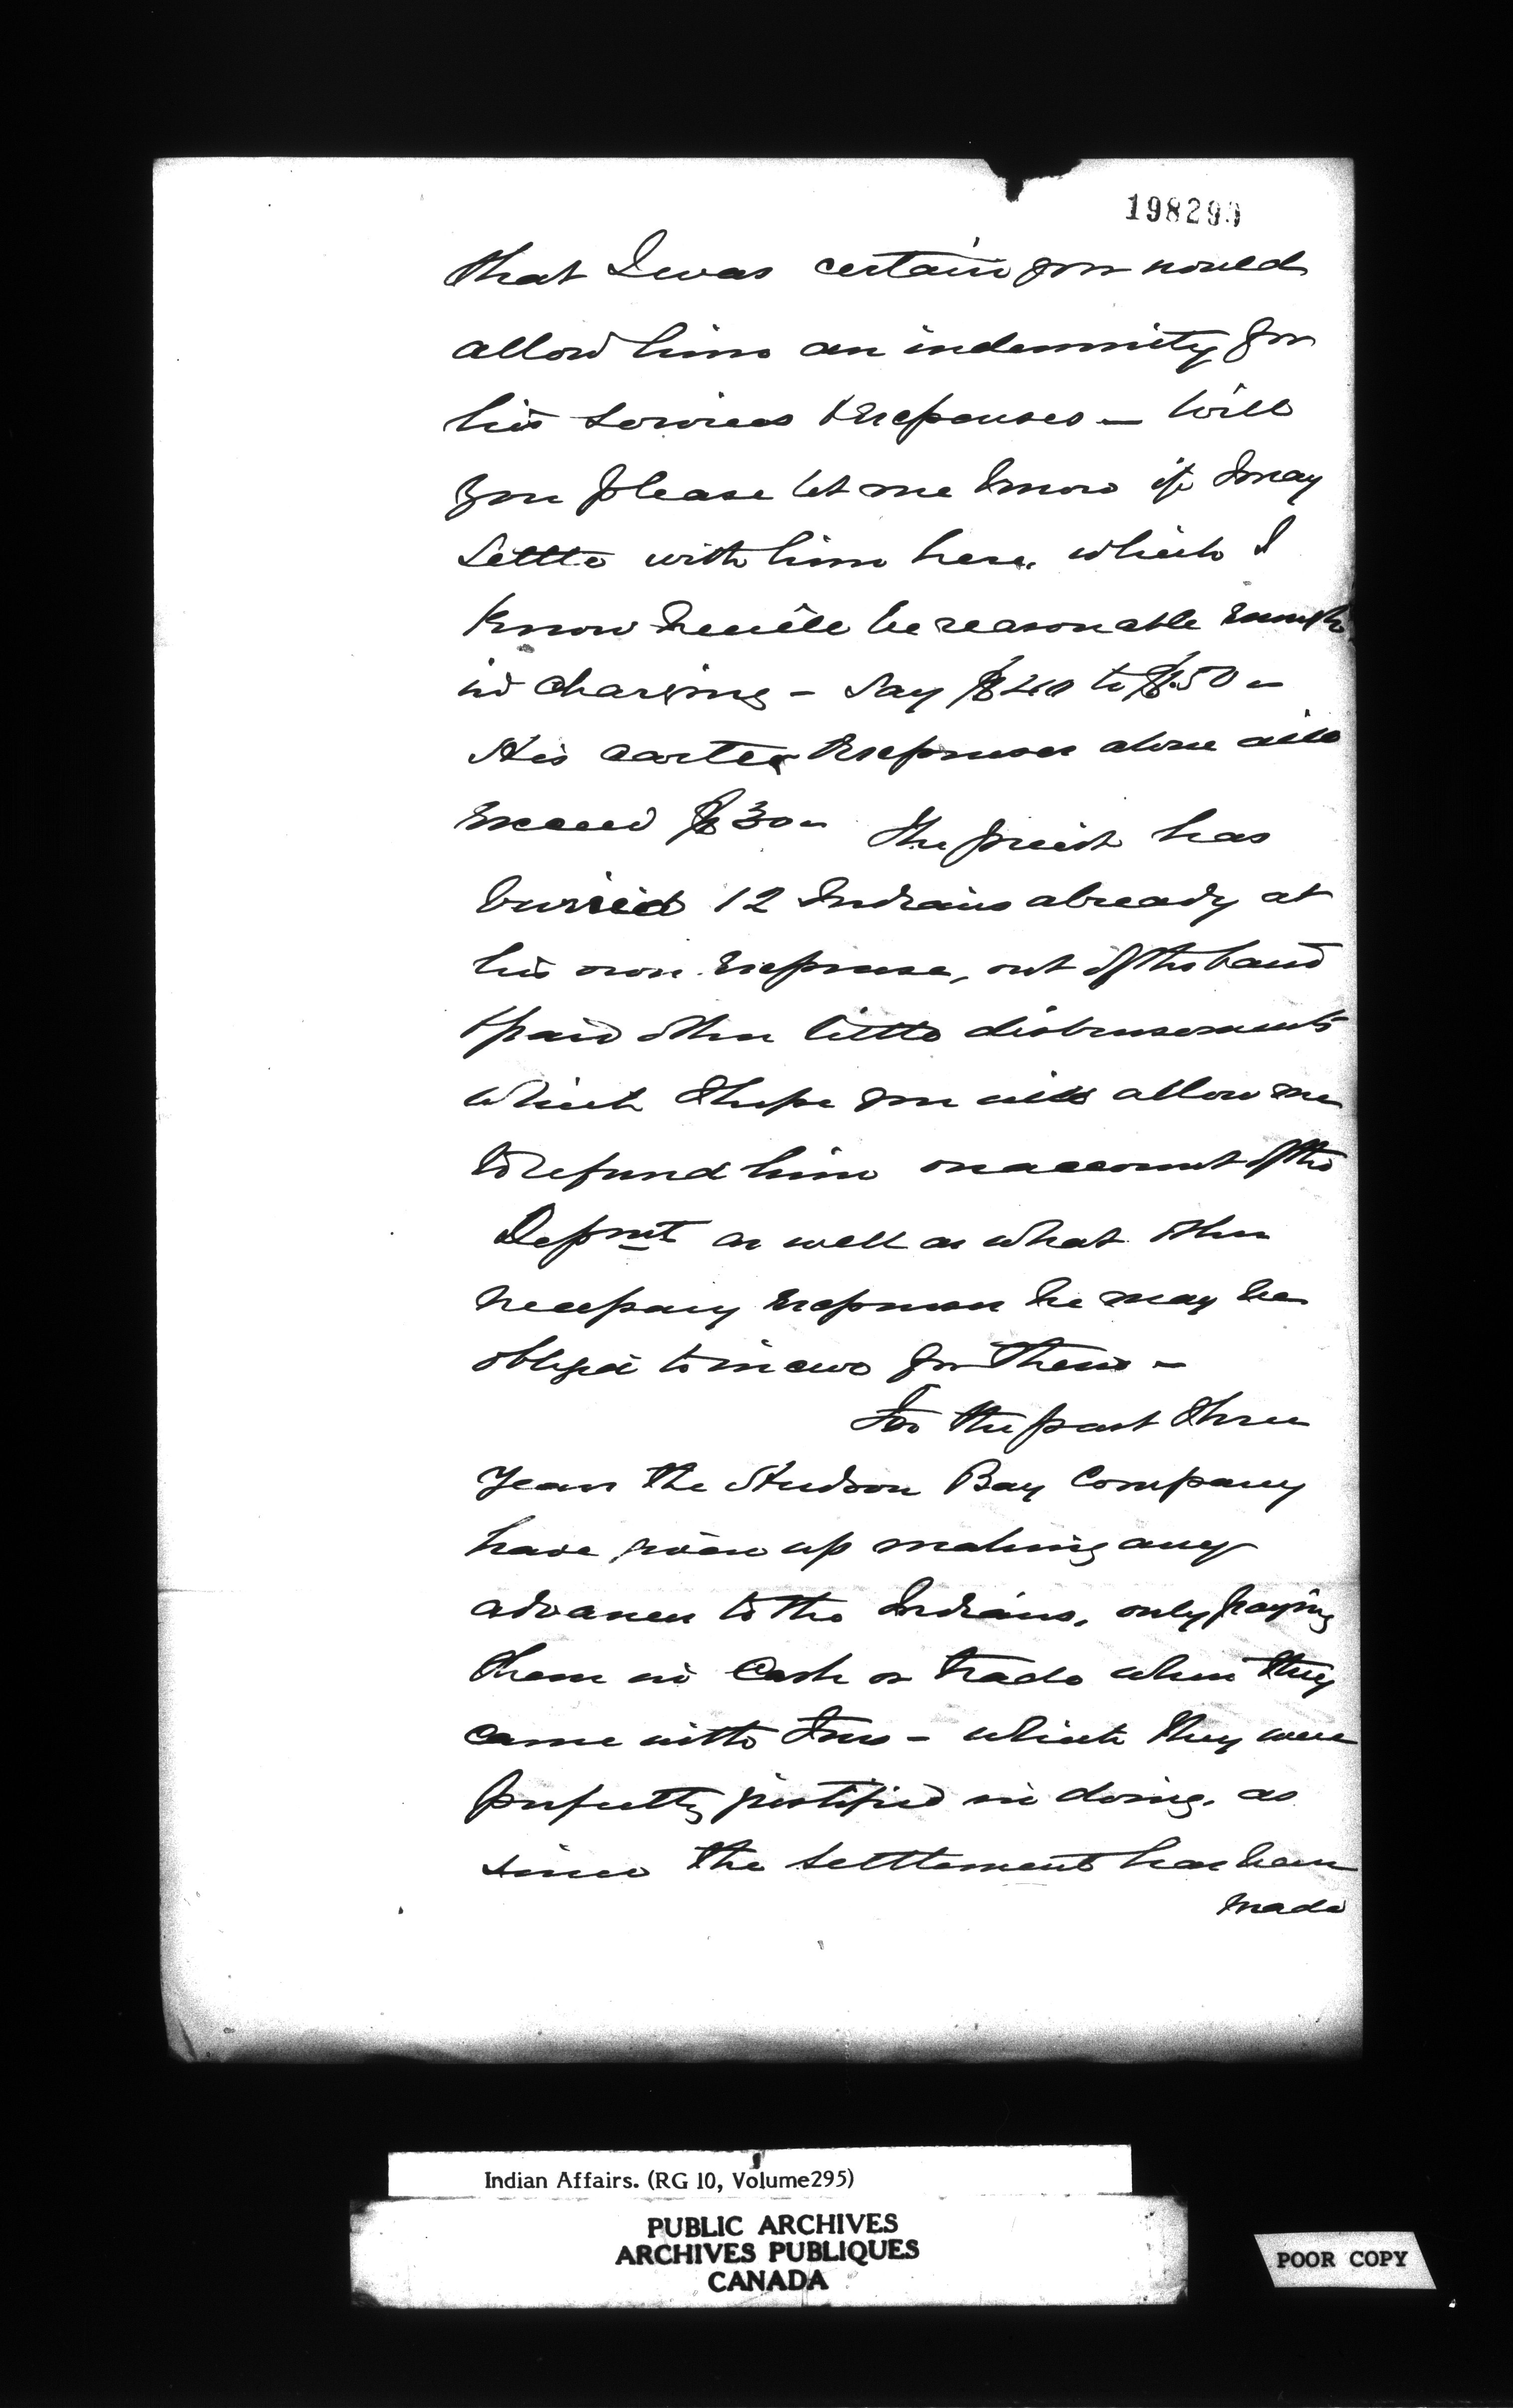 198293
that I was certain you would
allow him an indemnity for
his services & expenses — Will
you please let me know if I may
settle with him here, which I
know he will be reasonable enough
in charging — Say $40 to $50 —
His expenses alone will
exceed $30 — The priest has
buried 12 Indians already at
his own expense, out of the band
& paid other little disbursements
which I hope you will allow me
to refund him on account of the
Depmt as well as what other
necessary expenses he may be
obliged to incur for them —
For the past three
years the Hudson Bay Company
have given up making any
advances to the Indians, only paying
them in Cash or trade when they
came with furs — which they were
perfectly justified in doing, as
since the settlement has been
made
Indian Affairs. (RG 10, Volume295)
PUBLIC ARCHIVES
ARCHIVES PUBLIQUES
CANADA
POOR COPY